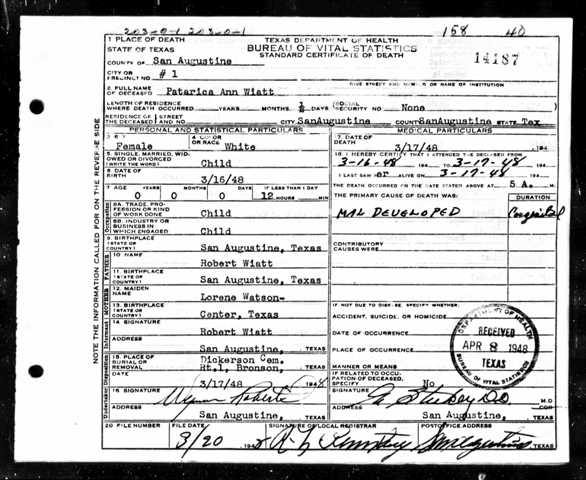 203-0-1 203-0-1 158 40
1 PLACE OF DEATH
STATE OF TEXAS
TEXAS DEPARTMENT OF HEALTH
BUREAU OF VITAL STATISTICS
STANDARD CERTIFICATE OF DEATH
14187
COUNTY OF San Augustine
CITY OR
PRECINCT NO. # 1
GIVE STREET AND NUMBER OR NAME OF INSTITUTION
2. FULL NAME
OF DECEASED Patarica Ann Wiatt
LENGTH OF RESIDENCE
WHERE DEATH OCCURRED YEARS MONTHS ½ DAYS (SOCIAL
SECURITY NO. None
RESIDENCE OF STREET
THE DECEASED AND NO. CITY SanAugustine COUNTY SanAugustine STATE Tex
PERSONAL AND STATISTICAL PARTICULARS
MEDICAL PARTICULARS
3 SEX Female
4 COLOR
OR RACE White
7. DATE OF
DEATH 3/17/48 194
5. SINGLE, MARRIED, WID-
OWED OR DIVORCED
(WRITE THE WORD) Child
6. DATE OF
BIRTH 3/16/48
7 AGE YEARS MONTHS DAYS IF LESS THAN 1 DAY
0 0 0 12 HOURS MIN
8A. TRADE, PRO-
FESSION OR KIND
OF WORK DONE Child
8B. INDUSTRY OR
BUSINESS IN
WHICH ENGAGED Child
9. BIRTHPLACE
(STATE OR
COUNTRY) San Augustine, Texas
10 NAME Robert Wiatt
11. BIRTHPLACE
(STATE OR
COUNTRY) San Augustine, Texas
12. MAIDEN
NAME Lorene Watson-
13. BIRTHPLACE
(STATE OR
COUNTRY) Center, Texas
14. SIGNATURE Robert Wiatt
ADDRESS San Augustine, TEXAS
15. PLACE OF
BURIAL OR
REMOVAL Dickerson Cem.
Rt.1, Bronson, TEXAS
3/17/48 1948
16 SIGNATURE Wyman Roberts
ADDRESS San Augustine, TEXAS
I HEREBY CERTIFY THAT I ATTENDED THE DECEASED FROM
3-16-48 194 TO 3-17-48 194
I LAST SAW her ALIVE ON 3-17-48 194
THE DEATH OCCURRED ON THE DATE STATED ABOVE AT 5 A. M
THE PRIMARY CAUSE OF DEATH WAS: DURATION
MAL DEVELOPED Congenital
CONTRIBUTORY
CAUSES WERE
IF NOT DUE TO DISEASE, SPECIFY WHETHER:
ACCIDENT, SUICIDE, OR HOMICIDE
DATE OF OCCURRENCE
PLACE OF OCCURRENCE
MANNER OR MEANS
IF RELATED TO OCCU-
PATION OF DECEASED,
SPECIFY No
SIGNATURE DO M.D
ADDRESS San Augustine, TEXAS
DEPARTMENT OF HEALTH
RECEIVED
APR 8 1948
TEXAS
BUREAU OF VITAL STATISTICS
20 FILE NUMBER FILE DATE SIGNATURE OF LOCAL REGISTRAR POSTOFFICE ADDRESS
3/20 1948 San Augustine TEXAS
NOTE THE INFORMATION CALLED FOR ON THE REVERSE SIDE